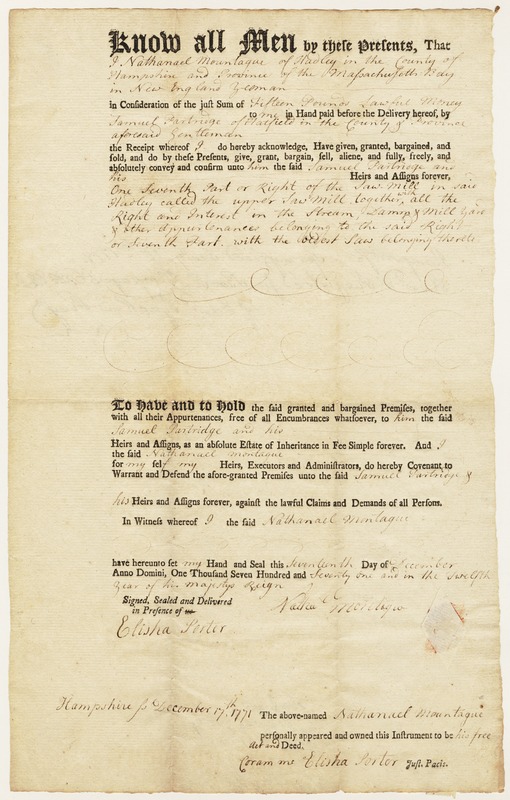 Know all Men by these Presents, That
I Nathanael Mountague of Hadley in the County of
Hampshire and Province of the Massachusetts Bay
in New England Yeoman
in Consideration of the just Sum of Fifteen Pounds Lawful Money
to me in Hand paid before the Delivery hereof, by
Samuel Partridge of Hatfield in the County & Province
aforesaid Gentleman
the Receipt whereof I do hereby acknowledge, Have given, granted, bargained, and
sold, and do by these Presents, give, grant, bargain, sell, aliene, and fully, freely, and
absolutely convey and confirm unto him the said Samuel Partridge and
his Heirs and Assigns forever,
One Seventh Part or Right of the Saw Mill in said
Hadley called the upper Saw Mill together with all the
Right and Interest in the Stream, Damm & Mill Yard
& other Appurtenances belonging to the said Right
or Seventh Part. with the oldest Saw belonging thereto
To Have and to Hold the said granted and bargained Premises, together
with all their Appurtenances, free of all Encumbrances whatsoever, to him the said
Samuel Partridge and his
Heirs and Assigns, as an absolute Estate of Inheritance in Fee Simple forever. And I
the said Nathanael Montague
for my self my Heirs, Executors and Administrators, do hereby Covenant to
Warrant and Defend the afore-granted Premises unto the said Samuel Partridge &
his Heirs and Assigns forever, against the lawful Claims and Demands of all Persons.
In Witness whereof I the said Nathanael Montague
have hereunto set my Hand and Seal this Seventeenth Day of December
Anno Domini, One Thousand Seven Hundred and Seventy one and in the twelfth
Year of his majestys Reign
Signed, Sealed and Delivered
in Presence of us
Elisha Porter
Hampshire ss December 17th. 1771 The above-named Nathanael Mountague
personally appeared and owned this Instrument to be his free
Act and Deed.
Coram me Elisha Porter Just. Pacis.